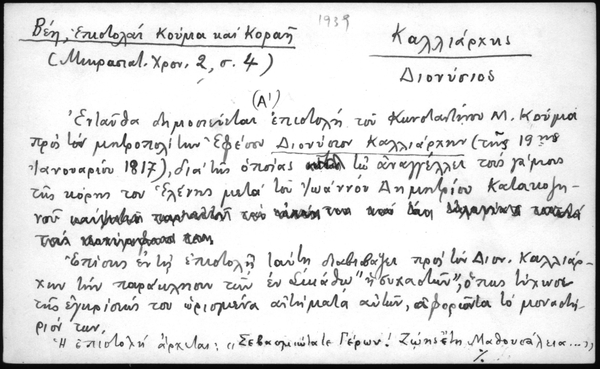 1939
Βέη, Ἐπιστολαὶ Κούμα καὶ Κοραῆ
(Μικρασιατ. Χρον. 2, σ. 4)
Καλλιάρχης
Διονύσιος
(Α')
Ἐνταῦθα δημοσιεύεται ἐπιστολὴ τοῦ Κωνσταντίνου Μ. Κούμα
πρὸς τὸν μητροπολίτην Ἐφέσου Διονύσιον Καλλιάρχην (τῆς 19ης
Ἰανουαρίου 1817), διὰ τῆς ὁποίας τῷ ἀναγγέλλει τοὺς γάμους
τῆς κόρης του Ἑλένης μετὰ τοῦ Ἰωάννου Δημητρίου Κατακοζη-
νοῦ
Ἐπίσης ἐν τῇ ἐπιστολῇ ταύτῃ διαβιβάζει πρὸς τὸν Διον. Καλλιάρ-
χην τὴν παράκλησιν τῶν ἐν "ἡσυχαστῶν", ὅπως τύχωσι
τῆς ἐγκρίσεώς του ὡρισμένα αἰτήματα αὐτῶν, ἀφορῶντα τὸ μοναστή-
ριόν των.
Ἡ ἐπιστολὴ ἄρχεται: "Σεβασμιώτατε Γέρων! Ζώης ἔτη Μαθουσάλεια...",
./.